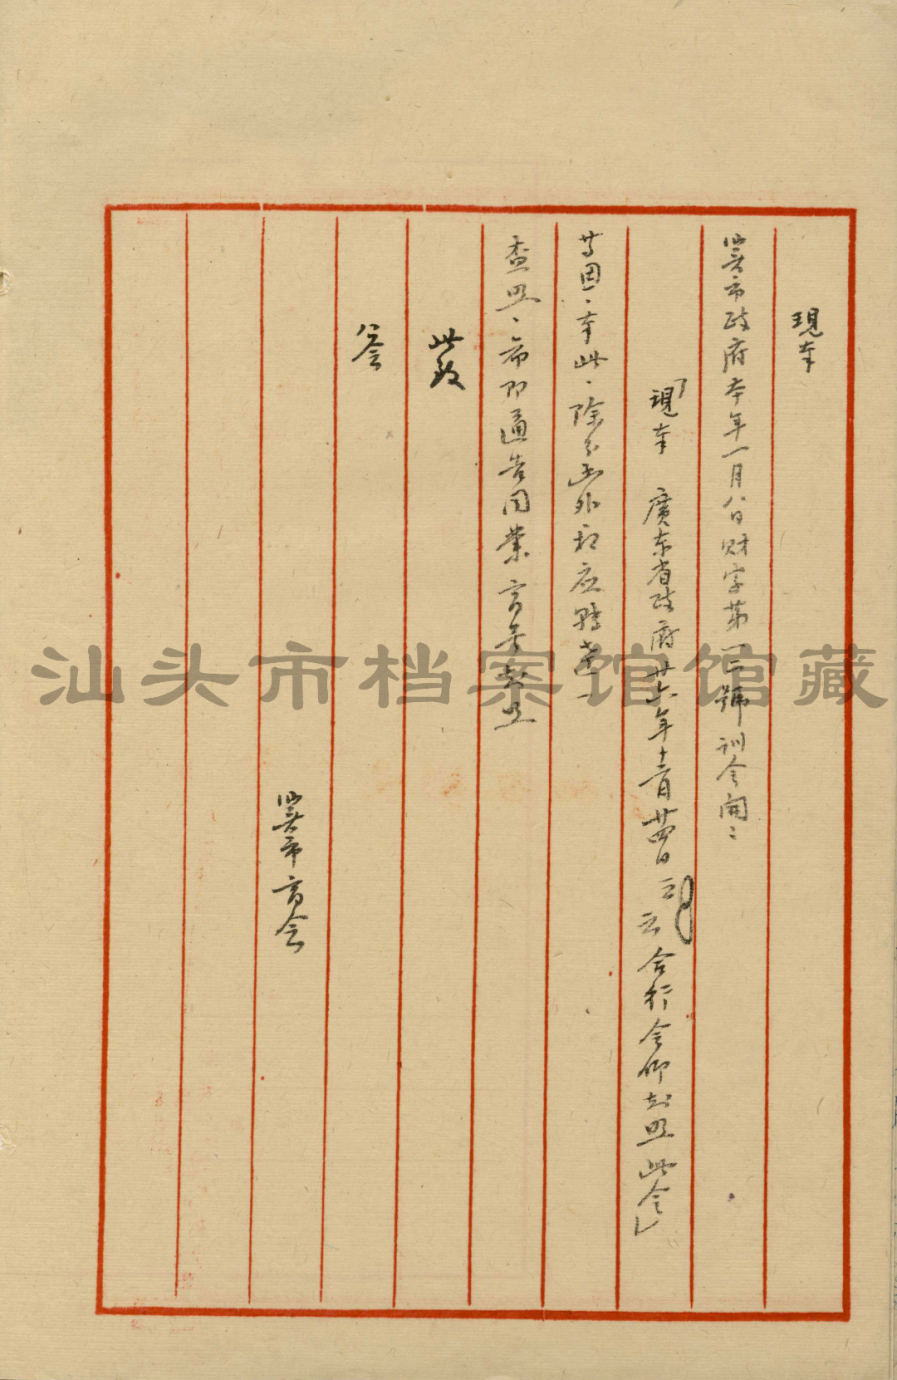 現奉
汕头市政府本年一月八日財字第一二號訓令開：
「現奉 廣东省政府廿六年十二月廿四日 云云 合行令仰知照此令」
等因，奉此，除分函外相应轉達
查照，希即通告同業 商号知照
此致
公会
汕头市商会
汕头市档案馆馆藏